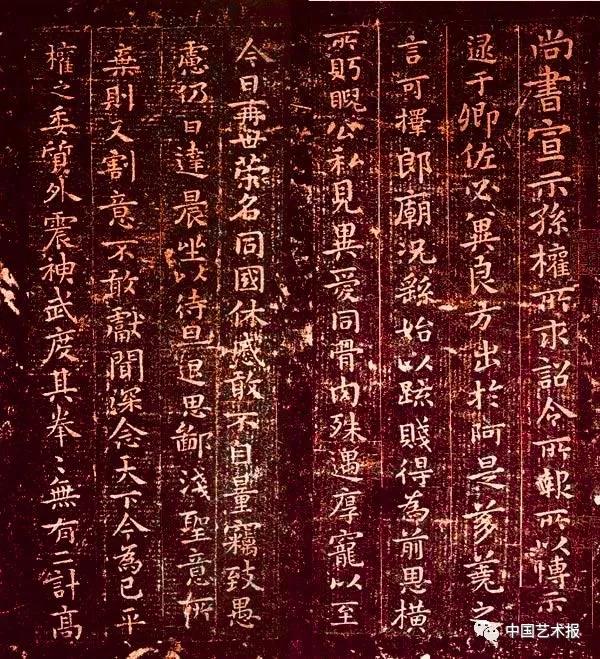 尚書宣示孫權所求詔令所報所以博示
逮于卿佐必冀良方出於阿是芻蕘之
言可擇郎廟況繇始以疏賤得為前恩橫
所眄睨公私見異愛同骨肉殊遇厚寵以至
今日再世榮名同國休慼敢不自量竊致愚
慮仍日達晨坐以待旦退思鄙淺聖意所
棄則又割意不敢獻聞深念天下今為已平
權之委質外震神武度其拳〻無有二計高
中国艺术报